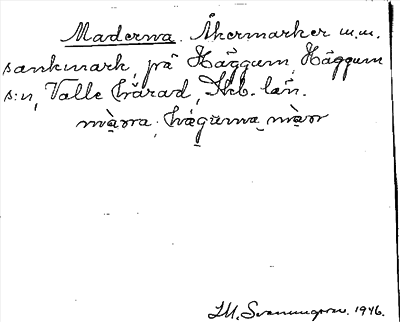 Maderna. Åkermarker m.m.
sankmark, på Häggum, Häggum
s:n, Valle härad, Skb. län.
màrra, hǻguma màrr
J.M. Svanungsson. 1946.